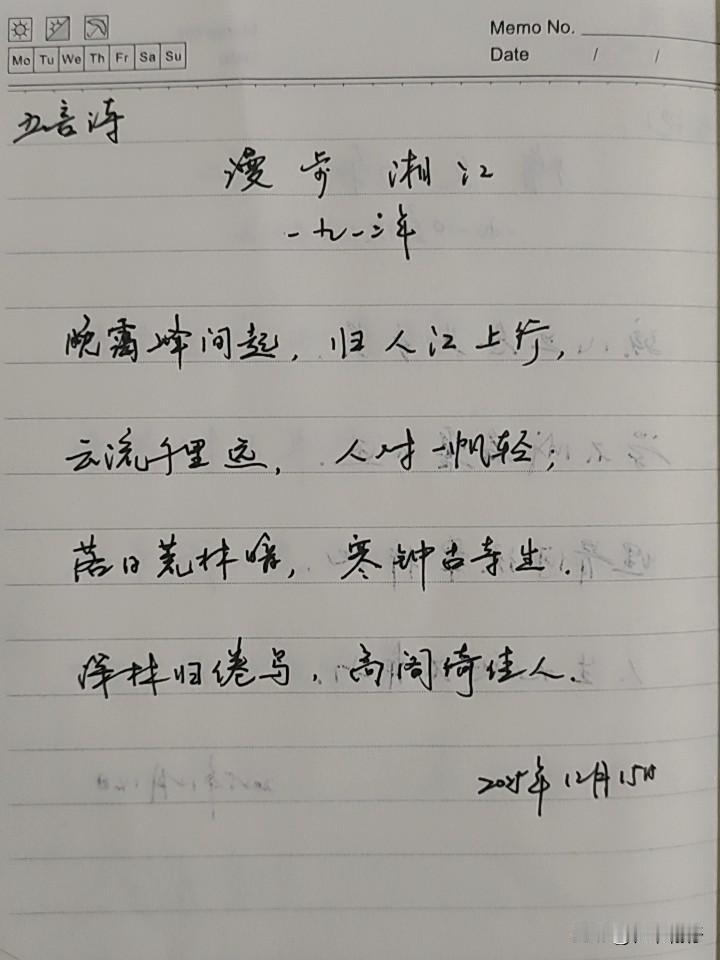 Memo No.
Mo Tu We Th Fr Sa Su
Date / /
五言诗
漫步湘江
一九一三年
晚霭峰间起，归人江上行，
云流千里远，人对一帆轻；
落日荒林暗，寒钟古寺生．
深林归倦鸟，高阁倚佳人．
2025年12月15日